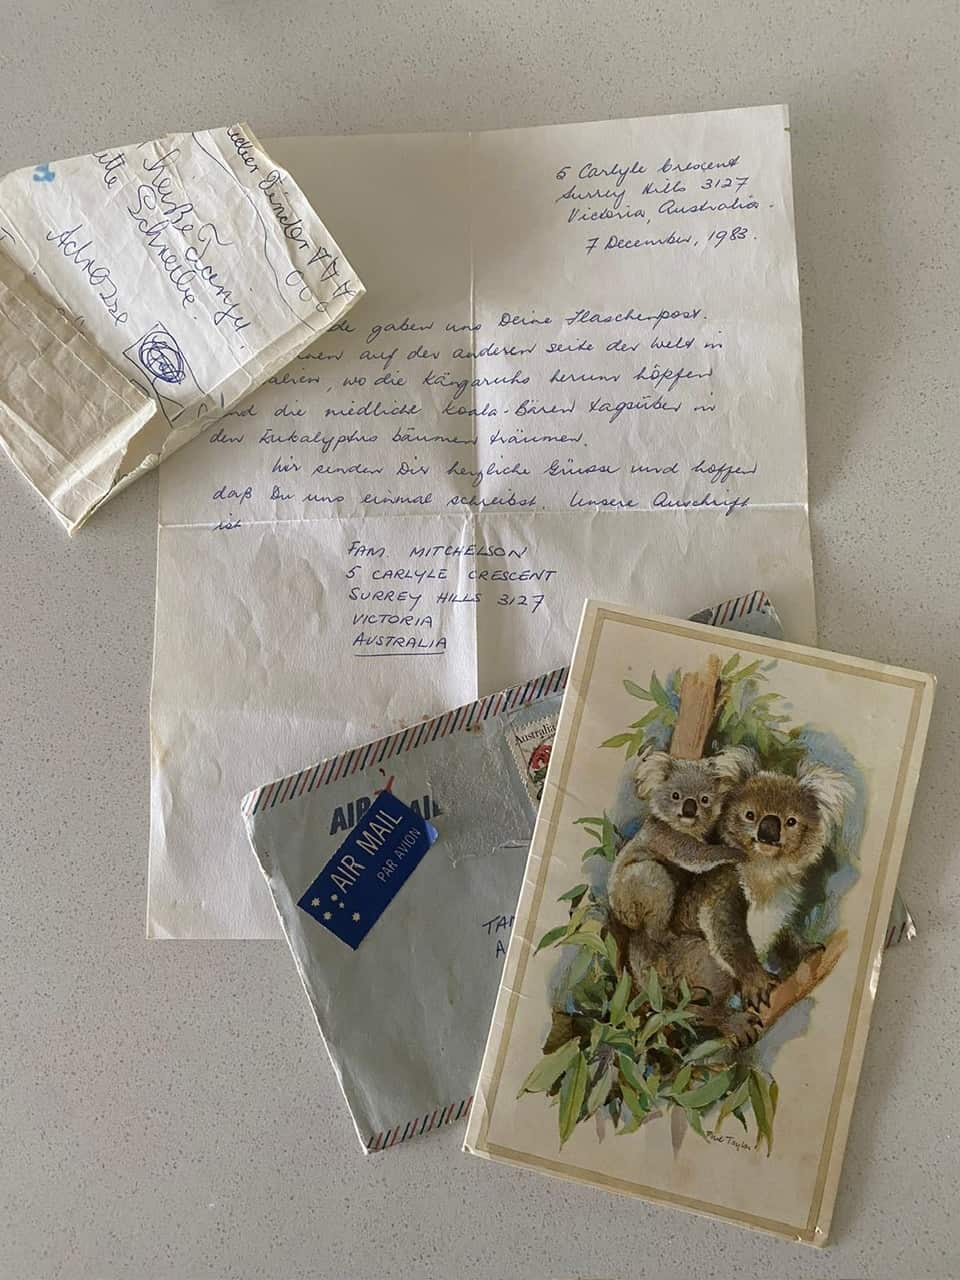 5 Carlyle Crescent
Surrey Hills 3127
Victoria, Australia.
7 December, 1983.
gaben uns Deine Flaschenpost.
auf der anderen seite der Welt in
wo die Kängaruhs herum höpfen
die niedliche Koala-Bären tagsüber in
den Eukalyptus bäumen träumen.
Wir senden Dir herzliche Grüsse und hoffen
daß Du uns einmal schreibst. Unsere Anschrift
ist
FAM. MITCHELSON
5 CARLYLE CRESCENT
SURREY HILLS 3127
VICTORIA
AUSTRALIA
heiße Tanju.
Schreibe
Adresse
AIR MAIL
Australia
AIR MAIL
PAR AVION
Paul Taylor